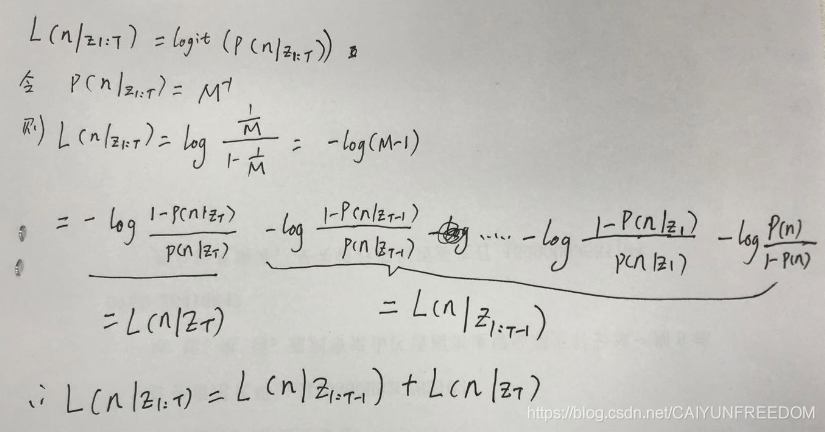 L(n|z1:T) = logit(P(n|z1:T)).
令 P(n|z1:T) = M⁻¹
则 L(n|z1:T) = log (1/M)/(1-1/M) = -log(M-1)
= -log (1-P(n|zT))/(P(n|zT)) -log (1-P(n|zT-1))/(P(n|zT-1)) ...... -log (1-P(n|z1))/(P(n|z1)) -log P(n)/(1-P(n))
= L(n|zT) = L(n|z1:T-1)
∴ L(n|z1:T) = L(n|z1:T-1) + L(n|zT)
https://blog.csdn.net/CAIYUNFREEDOM